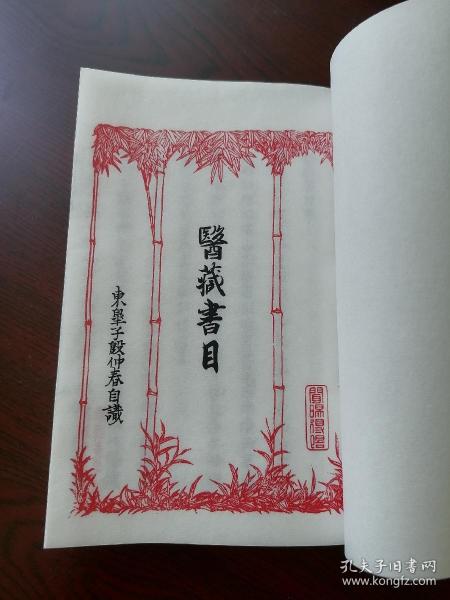 醫藏書目
東臯子殷仲春自識
孔夫子旧书网
www.kongfz.com